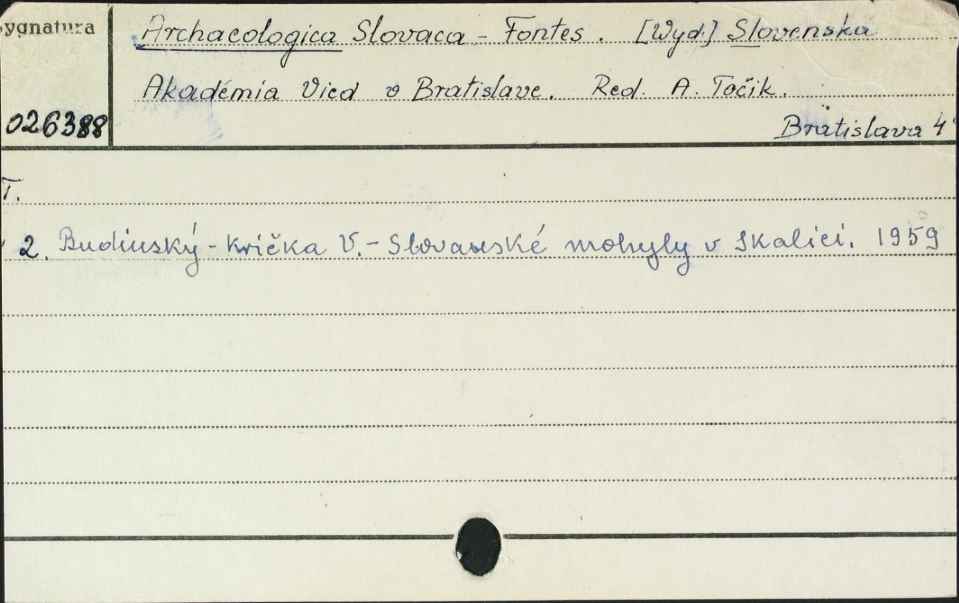 Sygnatura
Archaeologica Slovaca - Fontes. [Wyd.] Slovenska
Akadémia Vied v Bratislave. Red. A. Točik.
026388
Bratislava 4°
T.
2. Budinský-Krička V. - Slovanské mohyly v Skalici. 1959